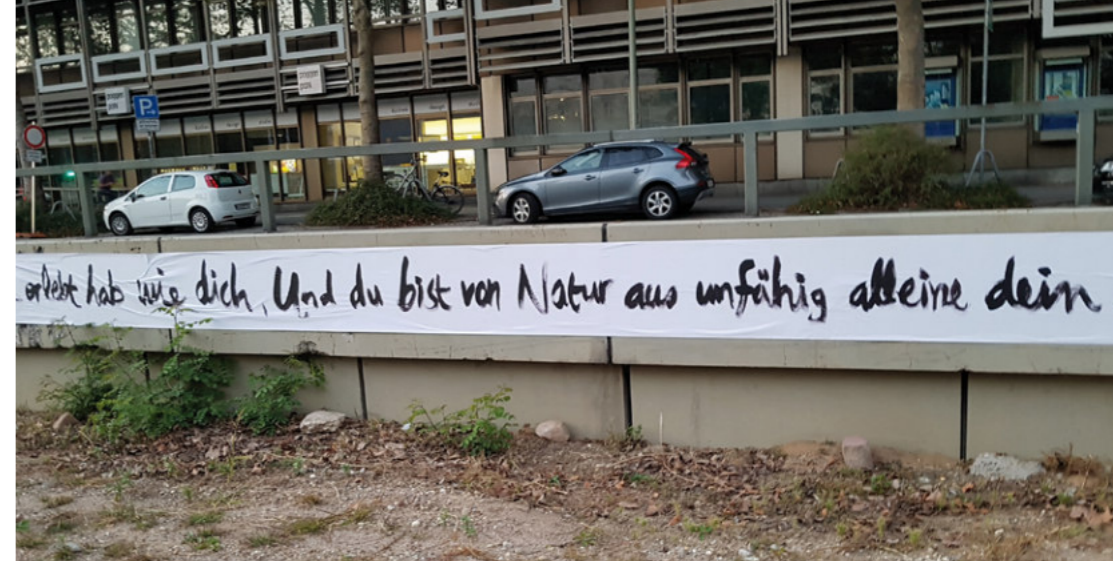 P
erlebt hab wie dich, Und du bist von Natur aus unfähig alleine dein